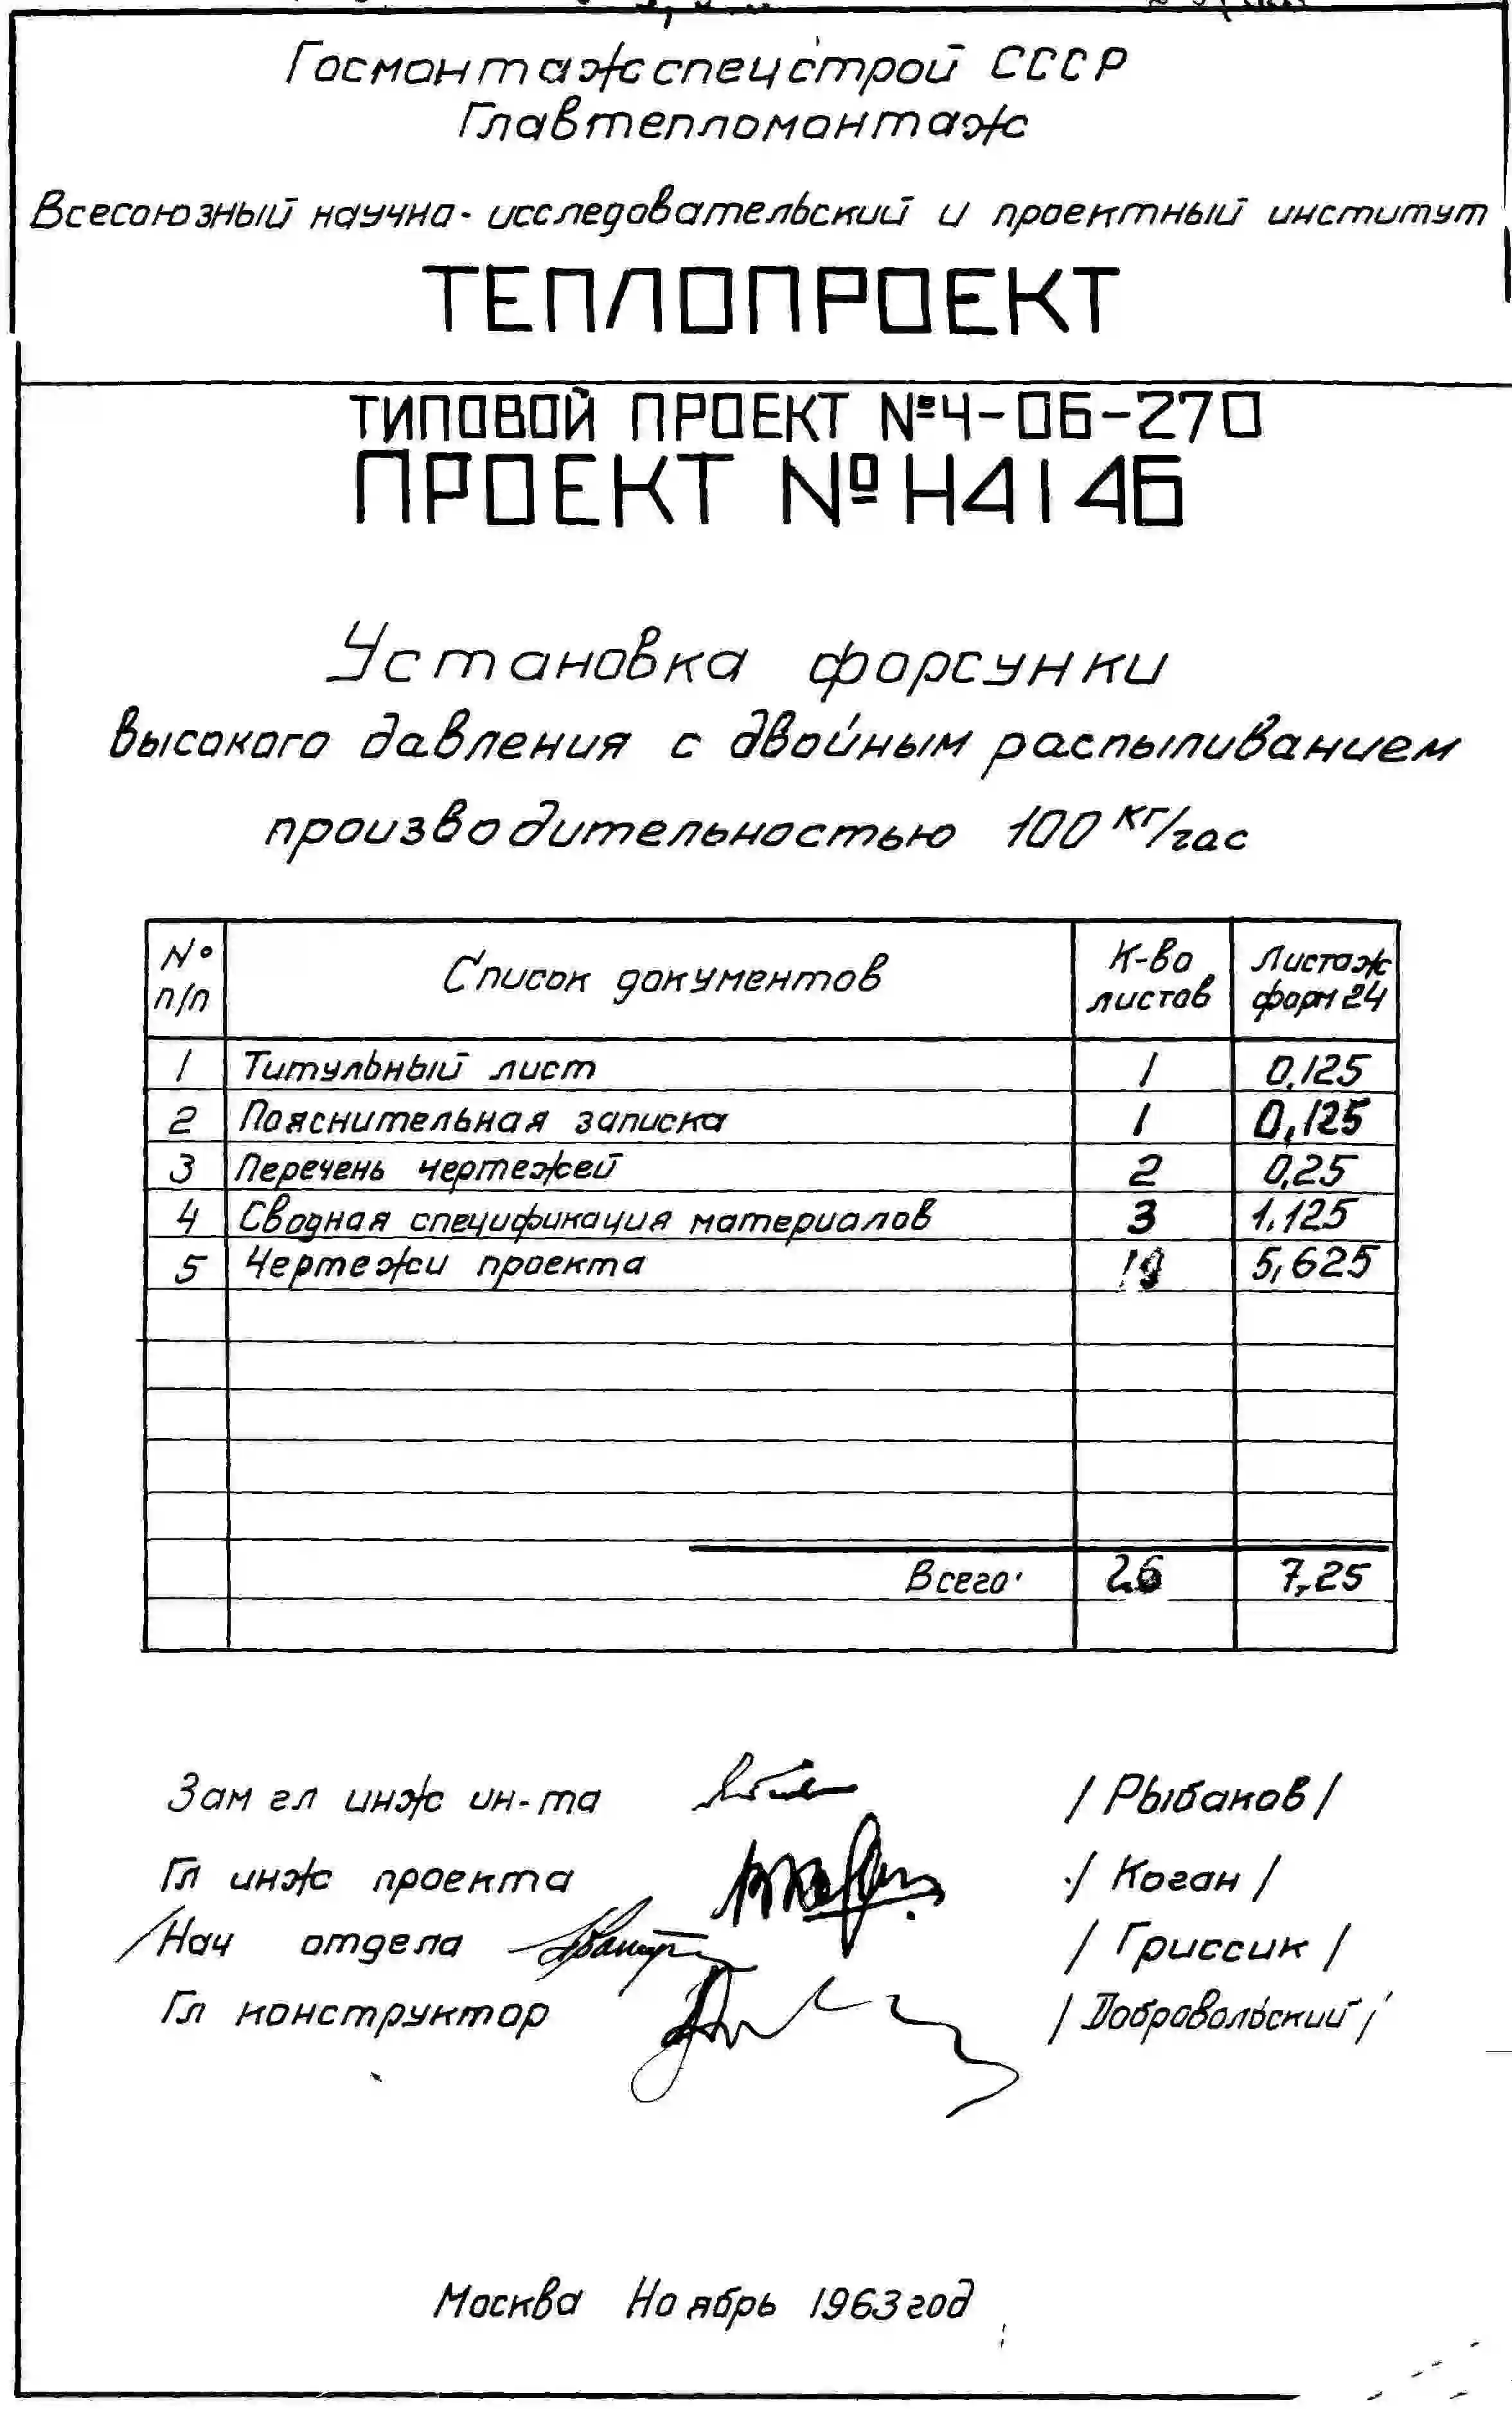 Госмонтажспецстрой СССР
Главтепломонтаж
Всесоюзный научно-исследовательский и проектный институт
ТЕПЛОПРОЕКТ
ТИПОВОЙ ПРОЕКТ №4-06-270
ПРОЕКТ № Н4146
Установка форсунки
высокого давления с двойным распыливанием
производительностью 100 кг/час
№ п/п Список документов К-во листов Листаж форм 24
1 Титульный лист 1 0,125
2 Пояснительная записка 1 0,125
3 Перечень чертежей 2 0,25
4 Сводная спецификация материалов 3 1,125
5 Чертежи проекта 19 5,625
Всего: 26 7,25
Зам гл инж ин-та /Рыбаков/
Гл инж проекта /Коган/
Нач отдела /Гриссик/
Гл конструктор /Добровольский/
Москва Ноябрь 1963 год